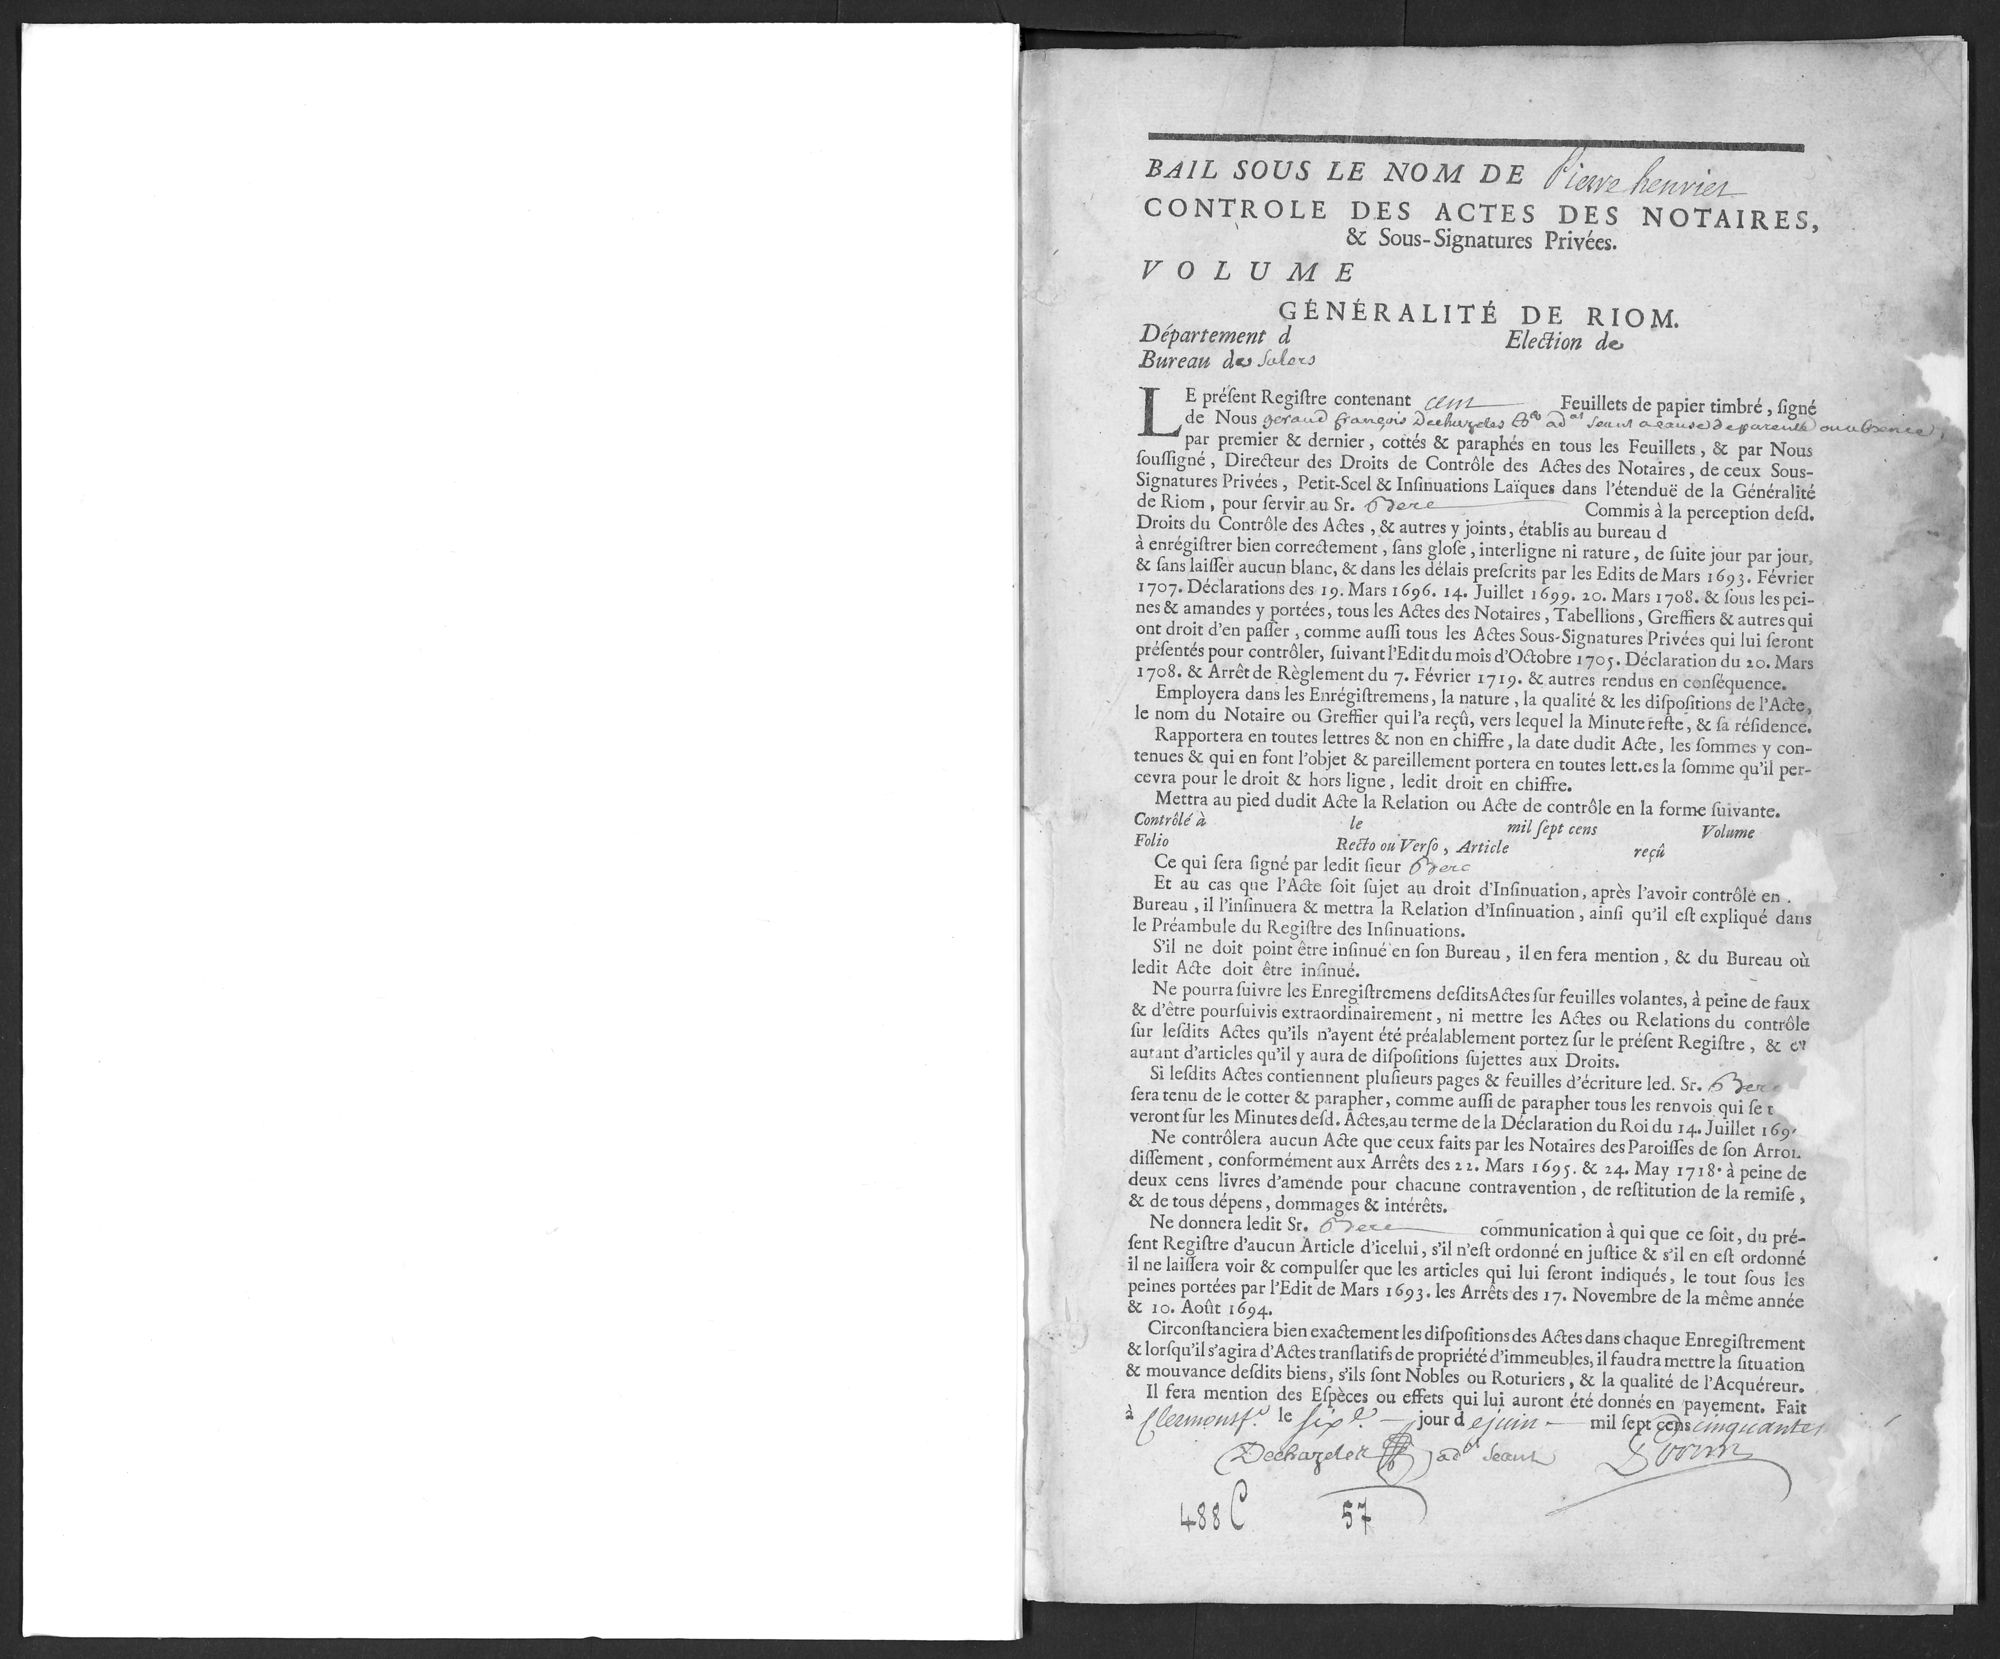 BAIL SOUS LE NOM DE Pierre henriet
CONTROLE DES ACTES DES NOTAIRES,
& Sous-Signatures Privées.
VOLUME
GÉNÉRALITÉ DE RIOM.
Département d Election de
Bureau de Salers
LE préſent Regiſtre contenant cent Feuillets de papier timbré, ſigné
de Nous geraud françois Decharzles ad seant a cause de parenté ou absence
par premier & dernier, cottés & paraphés en tous les Feuillets, & par Nous
ſouſſigné, Directeur des Droits de Contrôle des Actes des Notaires, de ceux Sous-
Signatures Privées, Petit-Scel & Inſinuations Laïques dans l'étenduë de la Généralité
de Riom, pour ſervir au Sr. Berc Commis à la perception deſd.
Droits du Contrôle des Actes, & autres y joints, établis au bureau d
à enrégiſtrer bien correctement, ſans gloſe, interligne ni rature, de ſuite jour par jour,
& ſans laiſſer aucun blanc, & dans les délais preſcrits par les Edits de Mars 1693. Février
1707. Déclarations des 19. Mars 1696. 14. Juillet 1699. 20. Mars 1708. & ſous les pei-
nes & amandes y portées, tous les Actes des Notaires, Tabellions, Greffiers & autres qui
ont droit d'en paſſer, comme auſſi tous les Actes Sous-Signatures Privées qui lui ſeront
préſentés pour contrôler, ſuivant l'Edit du mois d'Octobre 1705. Déclaration du 20. Mars
1708. & Arrêt de Règlement du 7. Février 1719. & autres rendus en conſéquence.
Employera dans les Enrégiſtremens, la nature, la qualité & les diſpoſitions de l'Acte,
le nom du Notaire ou Greffier qui l'a reçû, vers lequel la Minute reſte, & ſa réſidence.
Rapportera en toutes lettres & non en chiffre, la date dudit Acte, les ſommes y con-
tenues & qui en font l'objet & pareillement portera en toutes lett.es la ſomme qu'il per-
cevra pour le droit & hors ligne, ledit droit en chiffre.
Mettra au pied dudit Acte la Relation ou Acte de contrôle en la forme ſuivante.
Contrôlé à le mil ſept cens Volume
Folio Recto ou Verſo, Article reçû
Ce qui ſera ſigné par ledit ſieur Berc
Et au cas que l'Acte ſoit ſujet au droit d'Inſinuation, après l'avoir contrôlé en .
Bureau, il l'inſinuera & mettra la Relation d'Inſinuation, ainſi qu'il eſt expliqué dans
le Préambule du Regiſtre des Inſinuations.
S'il ne doit point être inſinué en ſon Bureau, il en fera mention, & du Bureau où
ledit Acte doit être inſinué.
Ne pourra ſuivre les Enregiſtremens deſdits Actes ſur feuilles volantes, à peine de faux
& d'être pourſuivis extraordinairement, ni mettre les Actes ou Relations du contrôle
ſur leſdits Actes qu'ils n'ayent été préalablement portez ſur le préſent Regiſtre, & en
autant d'articles qu'il y aura de diſpoſitions ſujettes aux Droits.
Si leſdits Actes contiennent pluſieurs pages & feuilles d'écriture led. Sr. Berc
ſera tenu de le cotter & parapher, comme auſſi de parapher tous les renvois qui ſe t
veront ſur les Minutes deſd. Actes, au terme de la Déclaration du Roi du 14. Juillet 169
Ne contrôlera aucun Acte que ceux faits par les Notaires des Paroiſſes de ſon Arron
diſſement, conformément aux Arrêts des 22. Mars 1695. & 24. May 1718. à peine de
deux cens livres d'amende pour chacune contravention, de reſtitution de la remiſe,
& de tous dépens, dommages & intérêts.
Ne donnera ledit Sr. Berc communication à qui que ce ſoit, du pré-
ſent Regiſtre d'aucun Article d'icelui, s'il n'eſt ordonné en juſtice & s'il en eſt ordonné
il ne laiſſera voir & compulſer que les articles qui lui ſeront indiqués, le tout ſous les
peines portées par l'Edit de Mars 1693. les Arrêts des 17. Novembre de la même année
& 10. Août 1694.
Circonſtanciera bien exactement les diſpoſitions des Actes dans chaque Enregiſtrement
& lorſqu'il s'agira d'Actes tranſlatifs de propriété d'immeubles, il faudra mettre la ſituation
& mouvance deſdits biens, s'ils ſont Nobles ou Roturiers, & la qualité de l'Acquéreur.
Il fera mention des Eſpèces ou effets qui lui auront été donnés en payement. Fait
à Clermont le six jour de juin mil ſept cens cinquante
ad seant
488 C 57